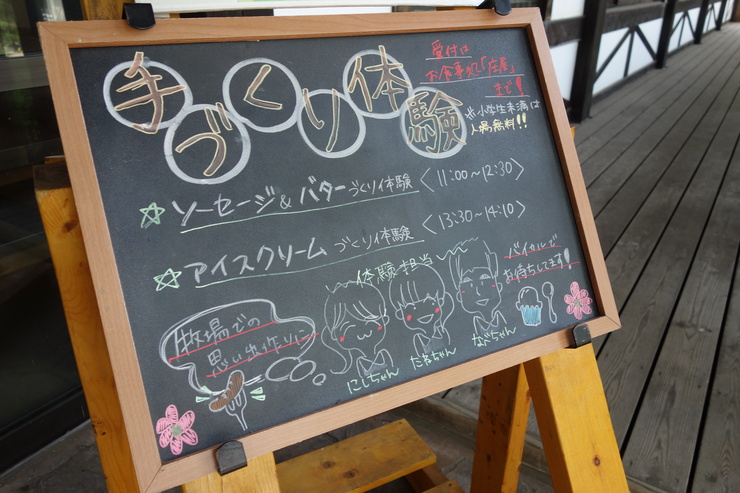 手づくり体験
受付は
お食事処「庄屋」
まで!
※小学生未満は
入場無料!!
☆ソーセージ&バターづくり体験 〈11:00～12:30〉
☆アイスクリームづくり体験 〈13:30～14:10〉
体験担当
バイカルで
お待ちしてます!
牧場での
思い出作りに
にしちゃん
たねちゃん
なべちゃん